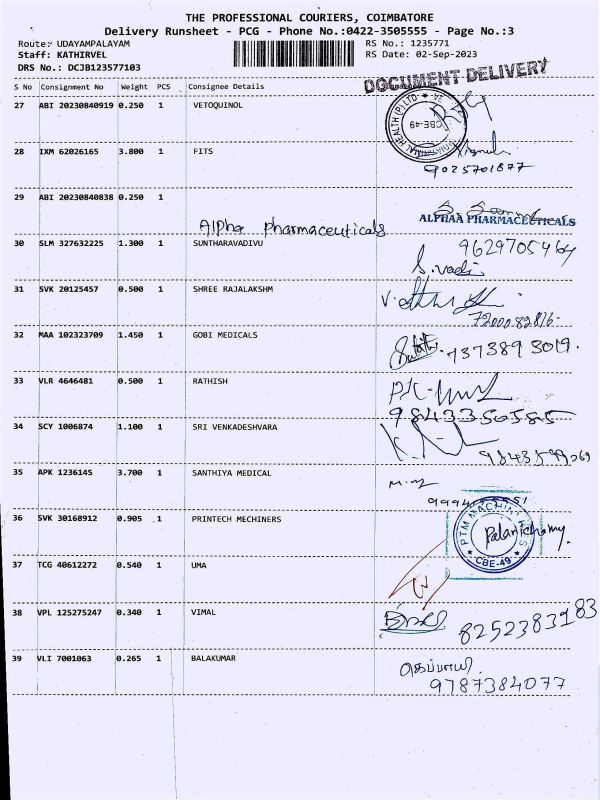 THE PROFESSIONAL COURIERS, COIMBATORE
Delivery Runsheet - PCG - Phone No.:0422-3505555 - Page No.:3
Route: UDAYAMPALAYAM RS No.: 1235771
Staff: KATHIRVEL RS Date: 02-Sep-2023
DRS No.: DCJB123577103
DOCUMENT DELIVERY
S No Consignment No Weight PCS Consignee Details
27 ABI 20230840919 0.250 1 VETOQUINOL
CBE-49
28 IXM 62026165 3.800 1 FITS
9025701877
29 ABI 20230840838 0.250 1
Alpha pharmaceuticals ALPHAA PHARMACEUTICALS
30 SLM 327632225 1.300 1 SUNTHARAVADIVU
S.vadi
31 SVK 20125457 0.500 1 SHREE RAJALAKSHM
7200082816
32 MAA 102323709 1.450 1 GOBI MEDICALS
7373893019.
33 VLR 4646481 0.500 1 RATHISH
9843356585
34 SCY 1006874 1.100 1 SRI VENKADESHVARA
35 APK 1236145 3.700 1 SANTHIYA MEDICAL
36 SVK 30168912 0.905 1 PRINTECH MECHINERS
PTM MACHINES
Palanichamy.
CBE-49
37 TCG 40612272 0.540 1 UMA
38 VPL 125275247 0.340 1 VIMAL
8252383983
39 VLI 7001063 0.265 1 BALAKUMAR
9787384077